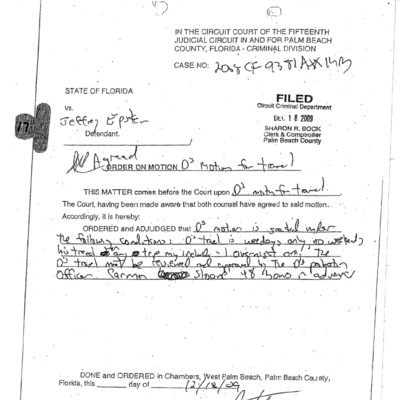 IN THE CIRCUIT COURT OF THE FIFTEENTH
JUDICIAL CIRCUIT IN AND FOR PALM BEACH
COUNTY, FLORIDA - CRIMINAL DIVISION
CASE NO:
STATE OF FLORIDA
vs.
Jeffrey Epstein
Defendant.
17
FILED
Circuit Criminal Department
DEC 18 2009
SHARON R. BOCK
Clerk & Comptroller
Palm Beach County
Agreed
ORDER ON MOTION D's Motion for travel
THIS MATTER comes before the Court upon D's motion for travel.
The Court, having been made aware that both counsel have agreed to said motion.
Accordingly, it is hereby:
ORDERED and ADJUDGED that D's motion is granted under
the following conditions: D's travel is weekdays only no weekends
his travel on any trip may include 1 overnight only. The
D's travel must be reviewed and approved by the D's probation
Officer Carmen Sloane 48 hours in advance
DONE and ORDERED in Chambers, West Palm Beach, Palm Beach County,
Florida, this day of 12/18/09